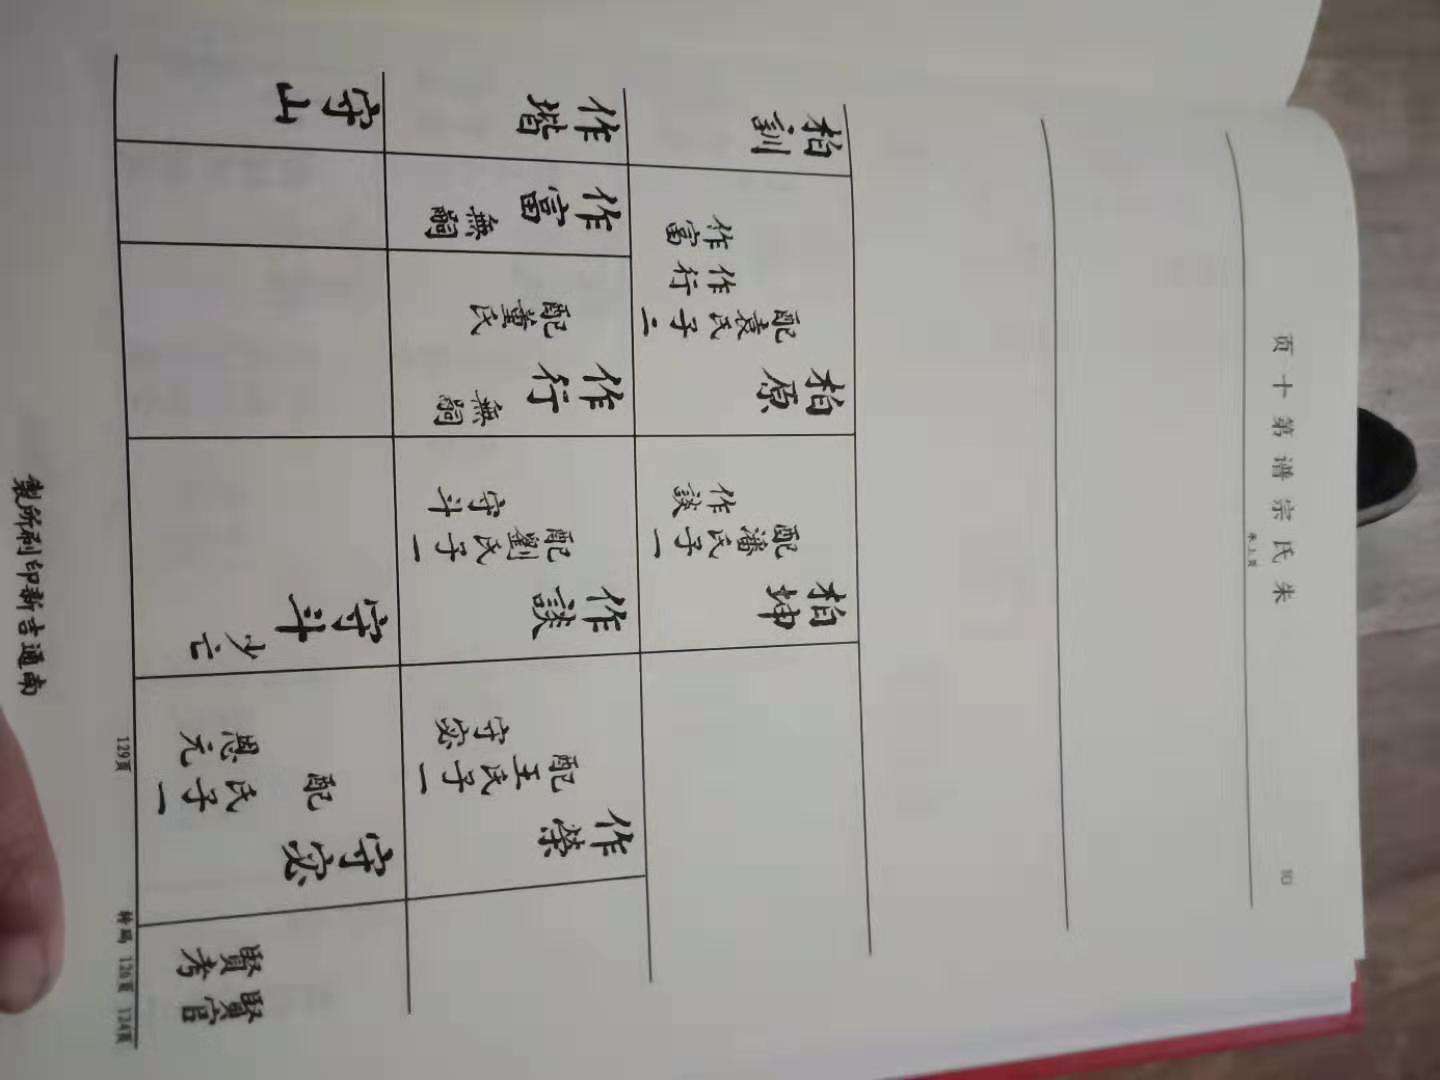 朱氏宗谱第十页
柏坤
配潘氏子一
作談
柏原
配袁氏子二
作行
作富
柏訓
作榮
配王氏子一
守宓
作談
配劉氏子一
守斗
作行
無嗣
配黃氏
作富
無嗣
作堦
賢官
賢考
守宓
配 氏子一
恩元
守斗
少亡
守山
124頁
126頁
129頁
南通吉新印刷所製